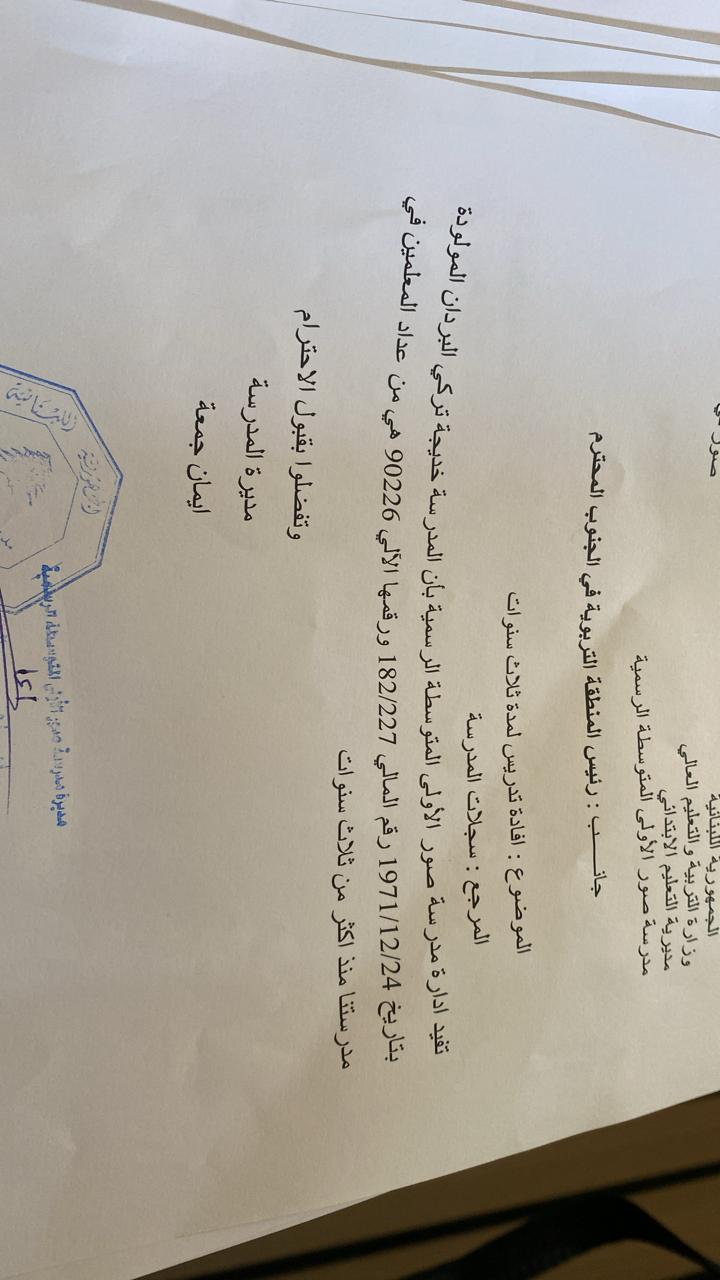 الجمهورية اللبنانية
وزارة التربية والتعليم العالي
مديرية التعليم الابتدائي
مدرسة صور الأولى المتوسطة الرسمية
صور في
جانـــب : رئيس المنطقة التربوية في الجنوب المحترم
الموضوع : افادة تدريس لمدة ثلاث سنوات
المرجع : سجلات المدرسة
تفيد ادارة مدرسة صور الأولى المتوسطة الرسمية بأن المدرسة خديجة تركي البردان المولودة
بتاريخ 1971/12/24 رقم المالي 182/227 ورقمها الآلي 90226 هي من عداد المعلمين في
مدرستنا منذ اكثر من ثلاث سنوات
وتفضلوا بقبول الاحترام
مديرة المدرسة
ايمان جمعة
الجمهورية اللبنانية
مديرة مدرسة صور الأولى المتوسطة الرسمية